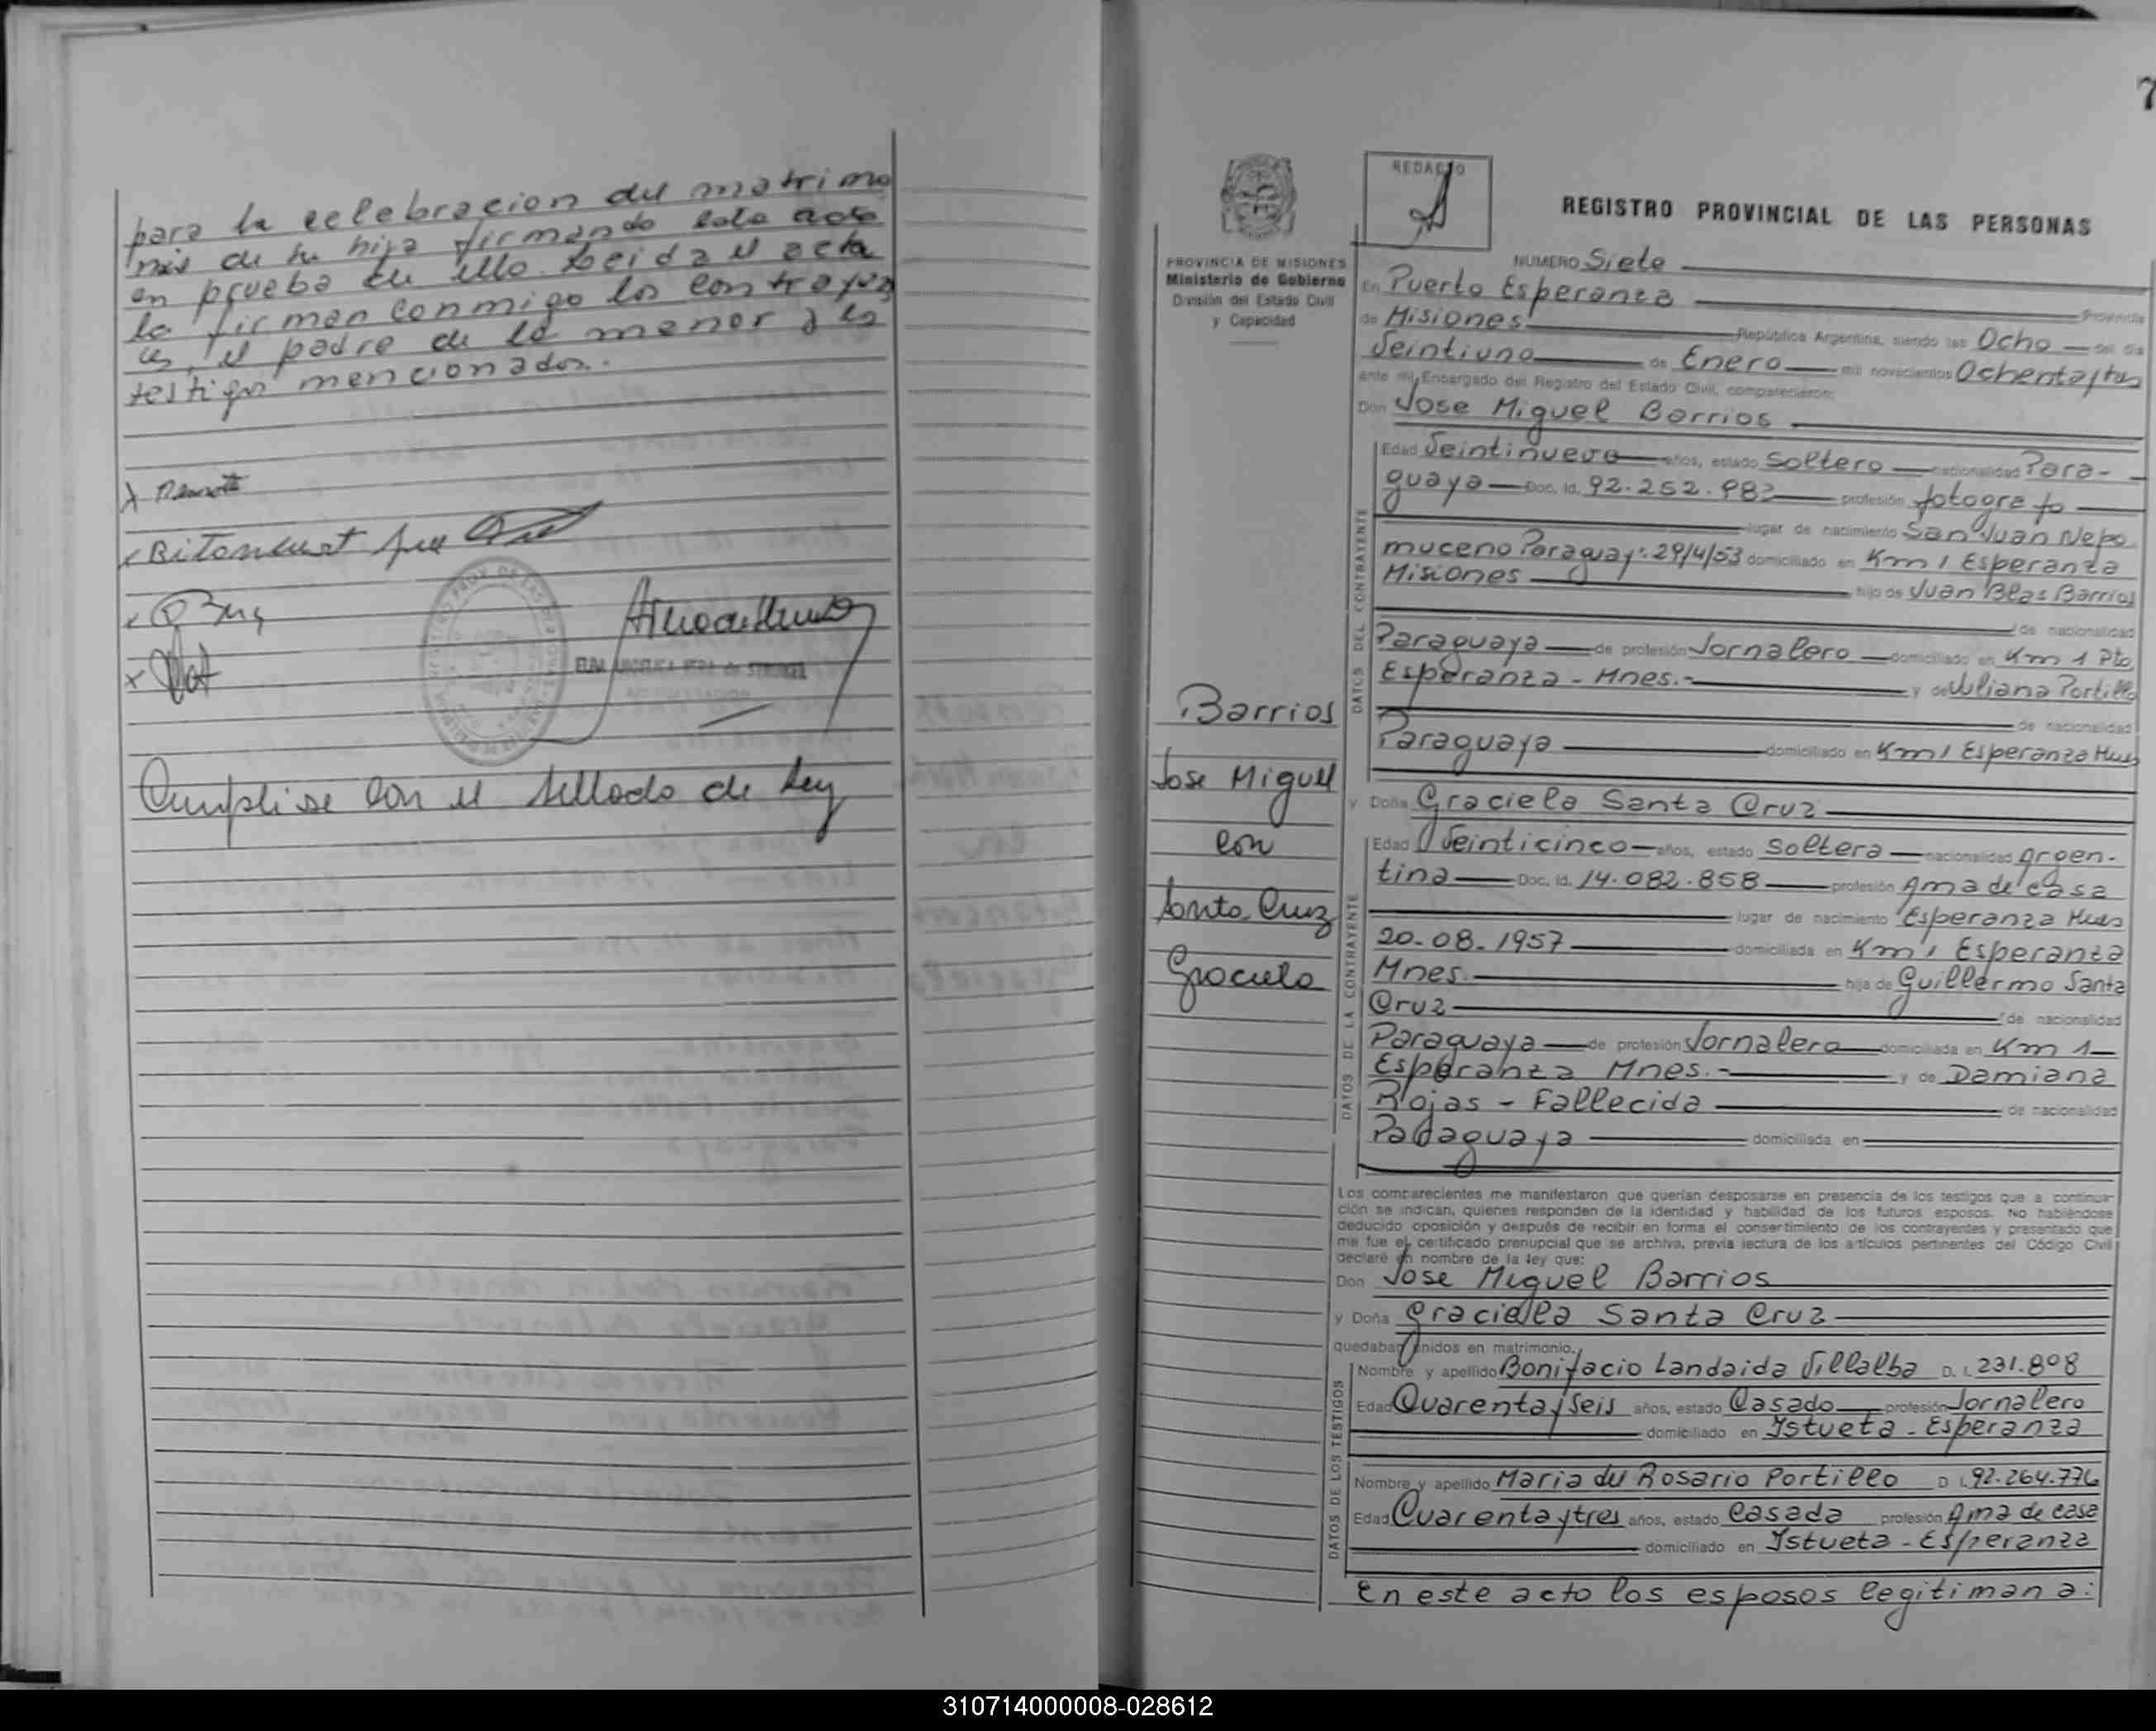 para la celebracion del matrimo
nio de su hija firmando este acto
en prueba de ello. Leida el acta
la firman conmigo los contrayen
tes, el padre de la menor y los
testigos mencionados.
Cumplise con el sellado de ley
7
REDACTO
REGISTRO PROVINCIAL DE LAS PERSONAS
PROVINCIA DE MISIONES
Ministerio de Gobierno
División del Estado Civil
y Capacidad
NUMERO Siete
En Puerto Esperanza Provincia
de Misiones República Argentina, siendo las Ocho del día
Veintiuno de Enero mil novecientos Ochentaytres
ante mi, Encargado del Registro del Estado Civil, comparecieron:
Don Jose Miguel Barrios
DATOS DEL CONTRAYENTE
Edad Veintinueve años, estado Soltero nacionalidad Para-
guaya Doc. Id. 92.252.983 profesión fotografo
lugar de nacimiento San Juan Nepo
muceno Paraguay: 29/4/53 domiciliado en Km 1 Esperanza
Misiones hijo de Juan Blas Barrios
de nacionalidad
Paraguaya de profesión Jornalero domiciliado en Km 1 Pto
Esperanza - Mnes.- y de Juliana Portillo
de nacionalidad
Paraguaya domiciliado en Km 1 Esperanza Mnes
Barrios
Jose Miguel
con
Santa Cruz
Graciela
y Doña Graciela Santa Cruz
DATOS DE LA CONTRAYENTE
Edad Veinticinco años, estado Soltera nacionalidad Argen-
tina Doc. Id. 14.082.858 profesión Ama de casa
lugar de nacimiento Esperanza Mnes
20-08-1957 domiciliada en Km 1 Esperanza
Mnes. hija de Guillermo Santa
Cruz de nacionalidad
Paraguaya de profesión Jornalero domiciliada en Km 1
Esperanza Mnes.- y de Damiana
Rojas - Fallecida de nacionalidad
Padaguaya domiciliada en
Los comparecientes me manifestaron que querían desposarse en presencia de los testigos que a continua-
ción se indican, quienes responden de la identidad y habilidad de los futuros esposos. No habiéndose
deducido oposición y después de recibir en forma el consertimiento de los contrayentes y presentado que
me fue el certificado prenupcial que se archiva, previa lectura de los artículos pertinentes del Código Civil
declaré en nombre de la ley que:
Don Jose Miguel Barrios
y Doña Graciela Santa Cruz
quedaban unidos en matrimonio.
DATOS DE LOS TESTIGOS
Nombre y apellido Bonifacio Landaida Villalba D. I. 231.808
Edad Cuarentayseis años, estado Casado profesión Jornalero
domiciliado en Istueta - Esperanza
Nombre y apellido Maria del Rosario Portillo D I. 92.264.776
Edad Cuarentaytres años, estado Casada profesión Ama de casa
domiciliado en Istueta - Esperanza
En este acto los esposos legitiman a:
310714000008-028612